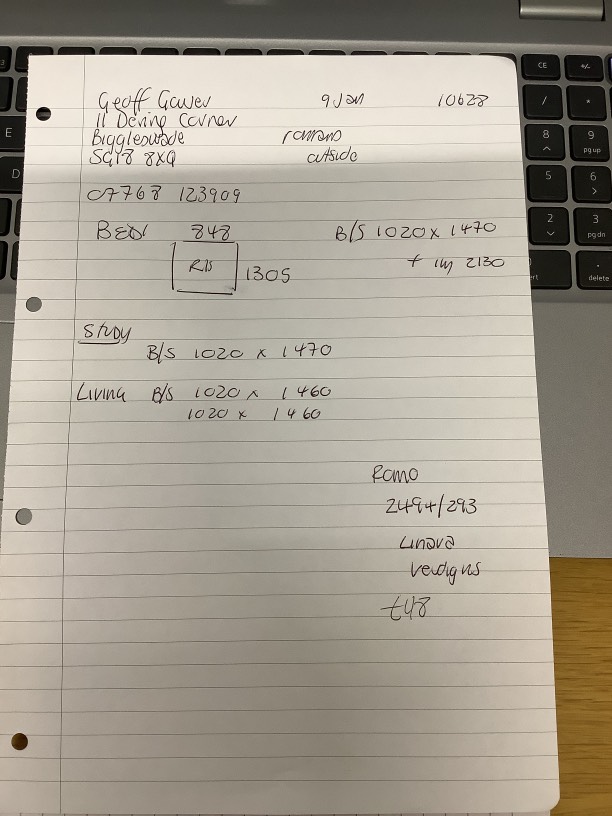 Geoff Gower 9 Jan 10628
11 Dering Corner
Biggleswade romans
SG18 8XQ outside
07768 123909
Bed 848 B/S 1020 x 1470
1305 + 2130
Study
B/S 1020 x 1470
Living B/S 1020 x 1460
1020 x 1460
Romo
2494/293
Linara
Verdigris
£48
CE +/-
/ *
8 9
pg up
5 6
2 3
pg dn
delete
E
D